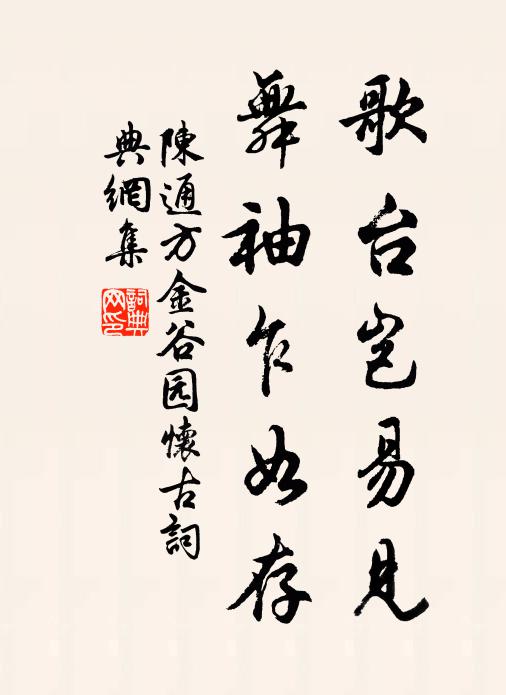 歌台岂易見
舞袖乍如存
陳通方金谷园懷古詞
典網集
詞典網印